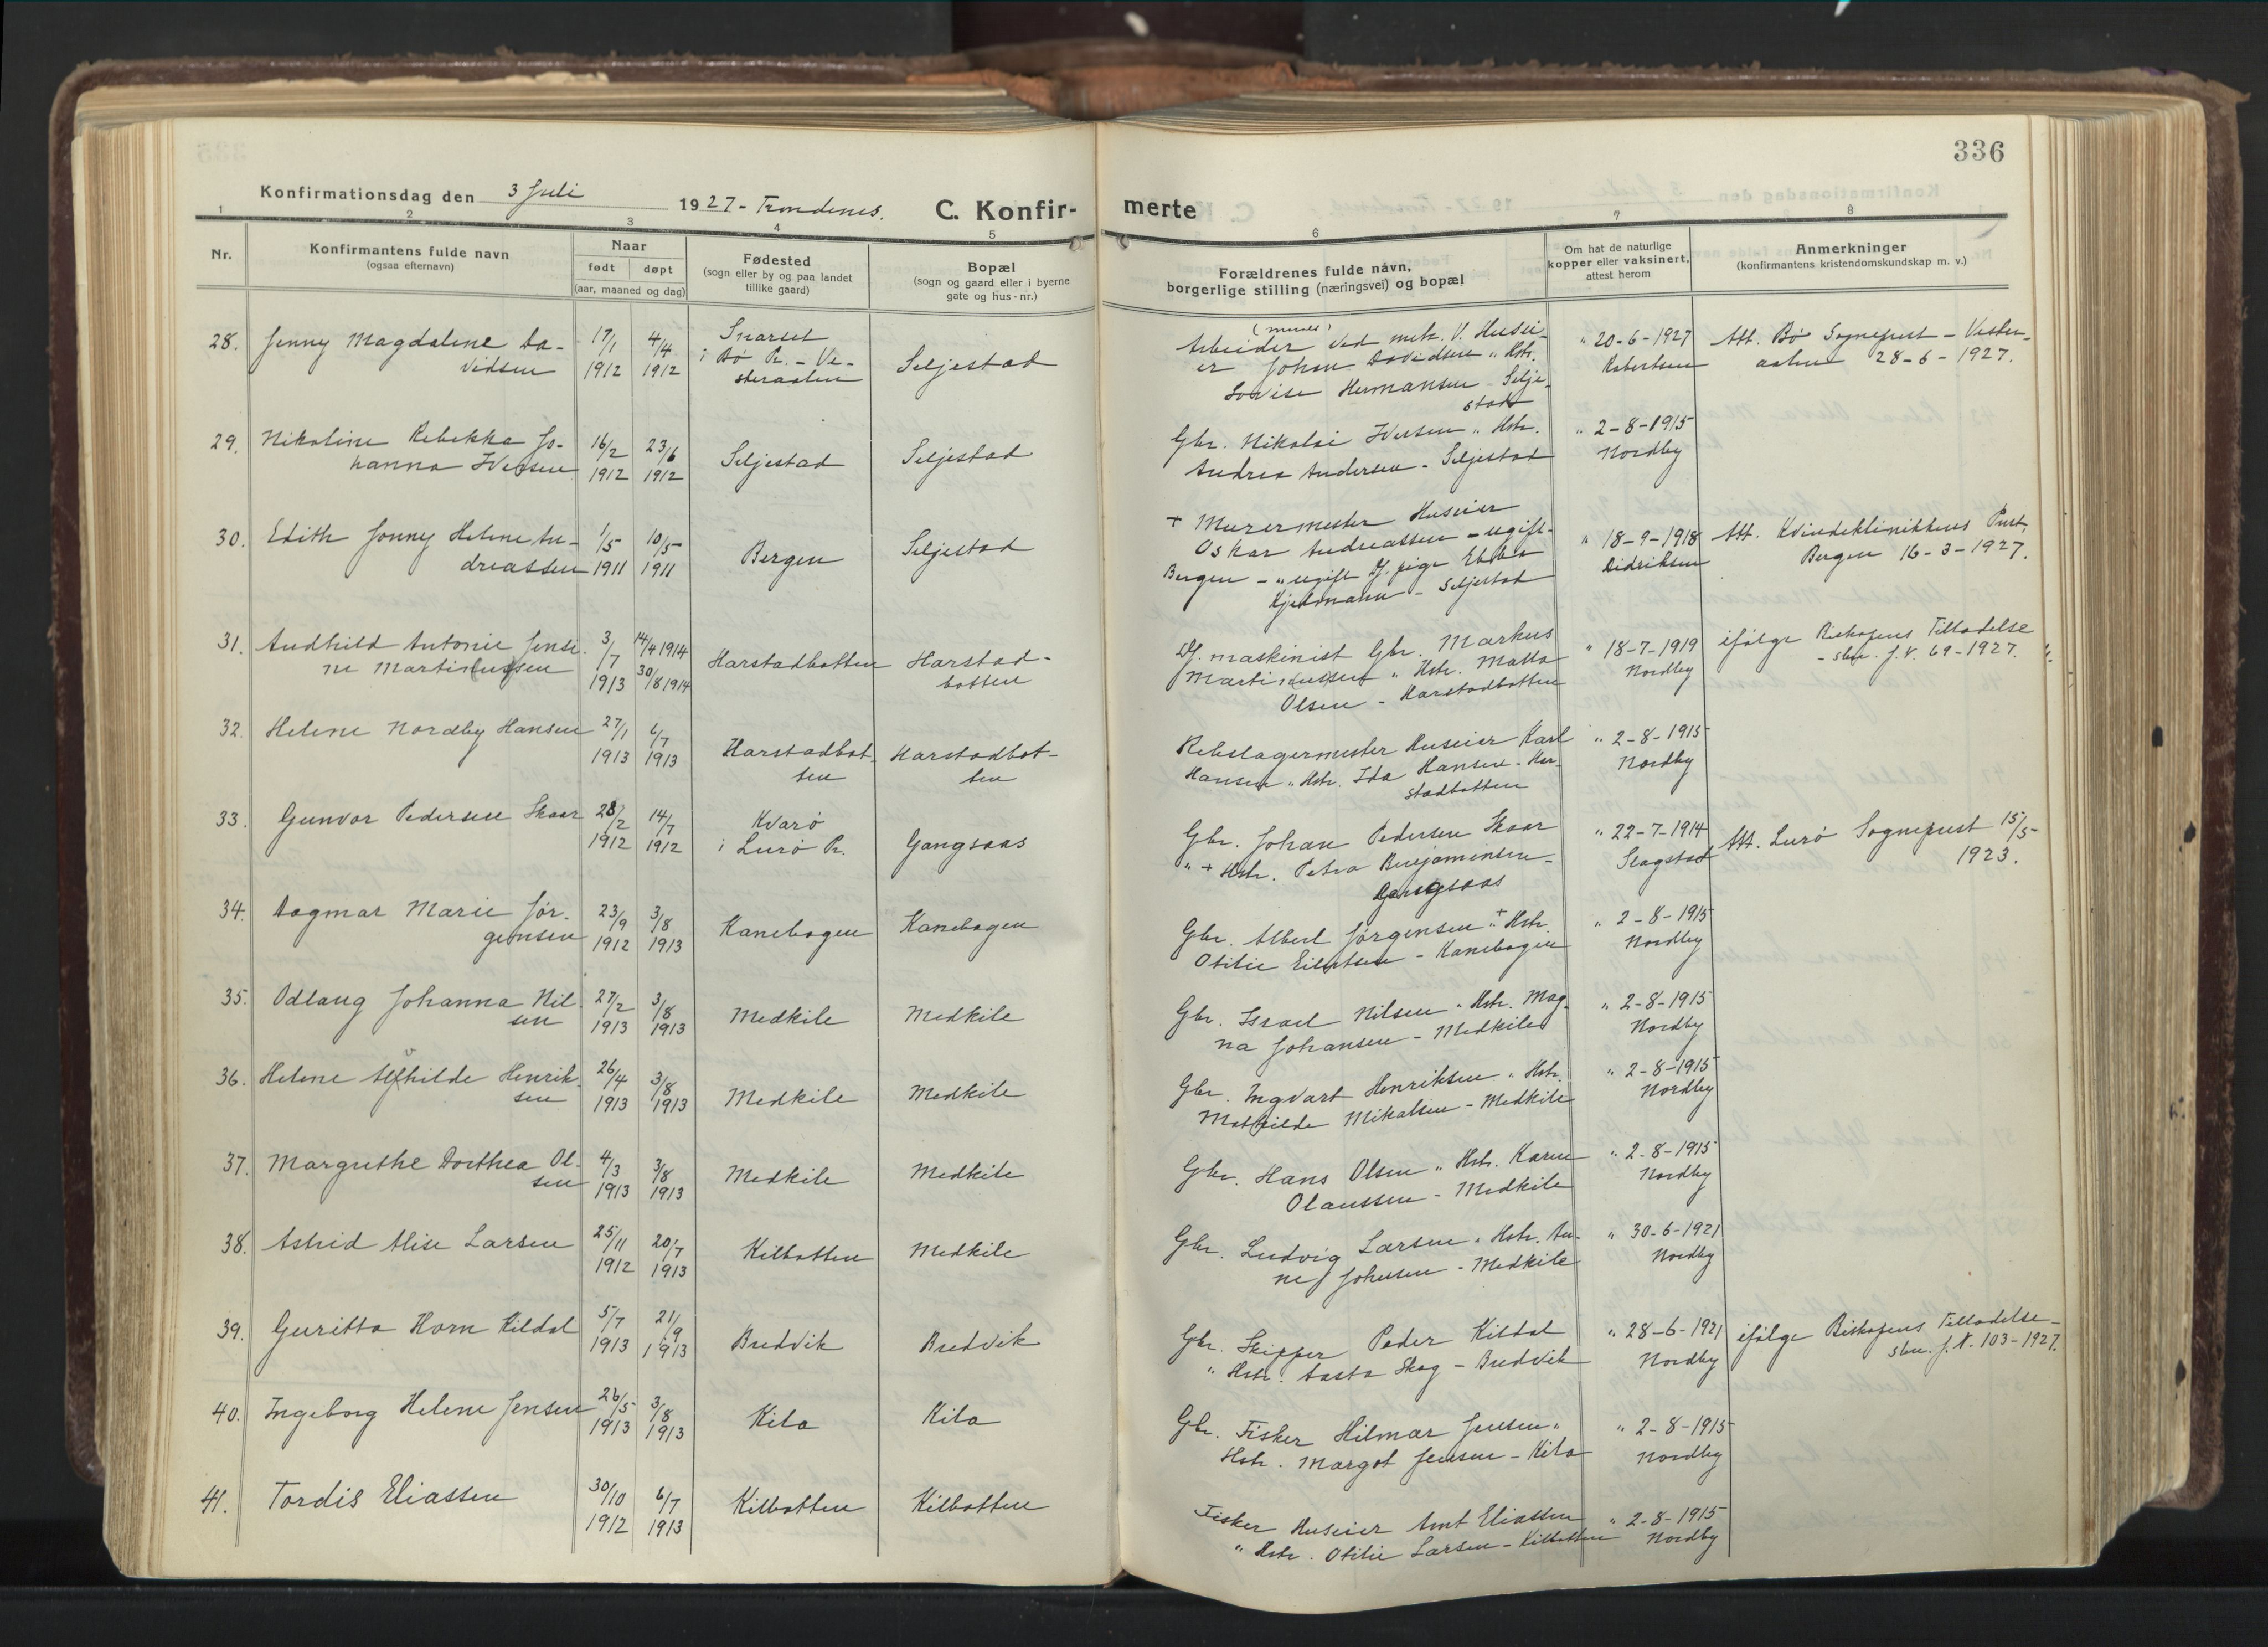 336
Konfirmationsdag den 3 Juli 1927 - Trondenes.
C. Konfir-
merte
1 2 3 4 5 6 7 8
Nr.
Konfirmantens fulde navn
(ogsaa efternavn)
Naar
født døpt
(aar, maaned og dag)
Fødested
(sogn eller by og paa landet
tillike gaard)
Bopæl
(sogn og gaard eller i byerne
gate og hus-nr.)
Forældrenes fulde navn,
borgerlige stilling (næringsvei) og bopæl
Om hat de naturlige
kopper eller vaksinert,
attest herom
Anmerkninger
(konfirmantens kristendomskundskap m. v.)
28. Jenny Magdalene Da-
vidsen
17/1 1912
4/4 1912
Snarset
i Bø Pr. - Ve-
steraalen
Seljestad
Arbeider ved mek. V. Husei-
er Johan Davidsen " Hstr.
Lovise Hermansen - Selje-
stad
" 20-6-1927
Robertsen
Att. Bø Sogneprest - Vester-
aalen 28-6-1927.
29. Nikoline Rebekka Jo-
hanna Iversen
16/2 1912
23/6 1912
Seljestad
Seljestad
Gbr. Nikolai Iversen " Hstr.
Andrea Andersen - Seljestad
" 2-8-1915
Nordby
30. Edith Jonny Helene An-
dreassen
1/5 1911
10/5 1911
Bergen
Seljestad
+ Murermester Huseier
Oskar Andreassen - ugift -
Bergen - " ugift Df. pige Ebba
Kjelmann - Seljestad
" 18-9-1918
Didriksen
Att. Kvindeklinikkens Prest,
Bergen 16-3-1927.
31. Audhild Antonie Jensi-
ne Martinussen
3/7 1913
14/4 1914
30/8 1914
Harstadbotten
Harstad-
botten
Df. maskinist Gbr. Markus
Martinussen " Hstr. Matta
Olsen - Harstadbotten
" 18-7-1919
Nordby
ifølge Biskopens Tilladelse
- skr. J.N. 69-1927.
32. Helene Nordby Hansen
27/1 1913
6/7 1913
Harstadbot-
ten
Harstadbot-
ten
Rebslagermester Huseier Karl
Hansen " Hstr. Ida Hansen - Har-
stadbotten
" 2-8-1915
Nordby
33. Gunvor Pedersen Skaar
28/2 1912
14/7 1912
Kvarø
i Lurø Pr.
Gangsaas
Gbr. Johan Pedersen Skaar
" + Hstr. Petra Benjaminsen -
Gangsaas
" 22-7-1914
Slagstad
Att. Lurø Sogneprest 15/5-
1923.
34. Dagmar Marie Jør-
gensen
23/9 1912
3/8 1913
Kanebogen
Kanebogen
Gbr. Albert Jørgensen " + Hstr.
Otilie Eilertsen - Kanebogen
" 2-8-1915
Nordby
35. Odlaug Johanna Nil-
sen
27/2 1913
3/8 1913
Medkile
Medkile
Gbr. Israel Nilsen " Hstr. Mag-
na Johansen - Medkile
" 2-8-1915
Nordby
36. Helene Alfhilde Henrik-
sen
26/4 1913
3/8 1913
Medkile
Medkile
Gbr. Ingvart Henriksen " Hstr.
Mathilde Mikalsen - Medkile
" 2-8-1915
Nordby
37. Margrethe Dorthea Ol-
sen
4/3 1913
3/8 1913
Medkile
Medkile
Gbr. Hans Olsen " Hstr. Karen
Olaussen - Medkile
" 2-8-1915
Nordby
38. Astrid Alise Larsen
25/11 1912
20/7 1913
Kilbotten
Medkile
Gbr. Ludvig Larsen " Hstr. An-
ne Johnsen - Medkile
" 30-6-1921
Nordby
39. Guritta Horn Kildal
5/7 1913
21/9 1913
Bredvik
Bredvik
Gbr. Skipper Peder Kildal
" Hstr. Aasta Skog - Bredvik
" 28-6-1921
Nordby
ifølge Biskopens Tilladelse -
skr. J.N. 103-1927.
40. Ingeborg Helene Jensen
26/5 1913
3/8 1913
Kila
Kila
Gbr. Fisker Hilmar Jensen "
Hstr. Margot Jensen - Kila
" 2-8-1915
Nordby
41. Tordis Eliassen
30/10 1912
6/7 1913
Kilbotten
Kilbotten
Fisker Huseier Arnt Eliassen
" Hstr. Otilie Larsen - Kilbotten
" 2-8-1915
Nordby